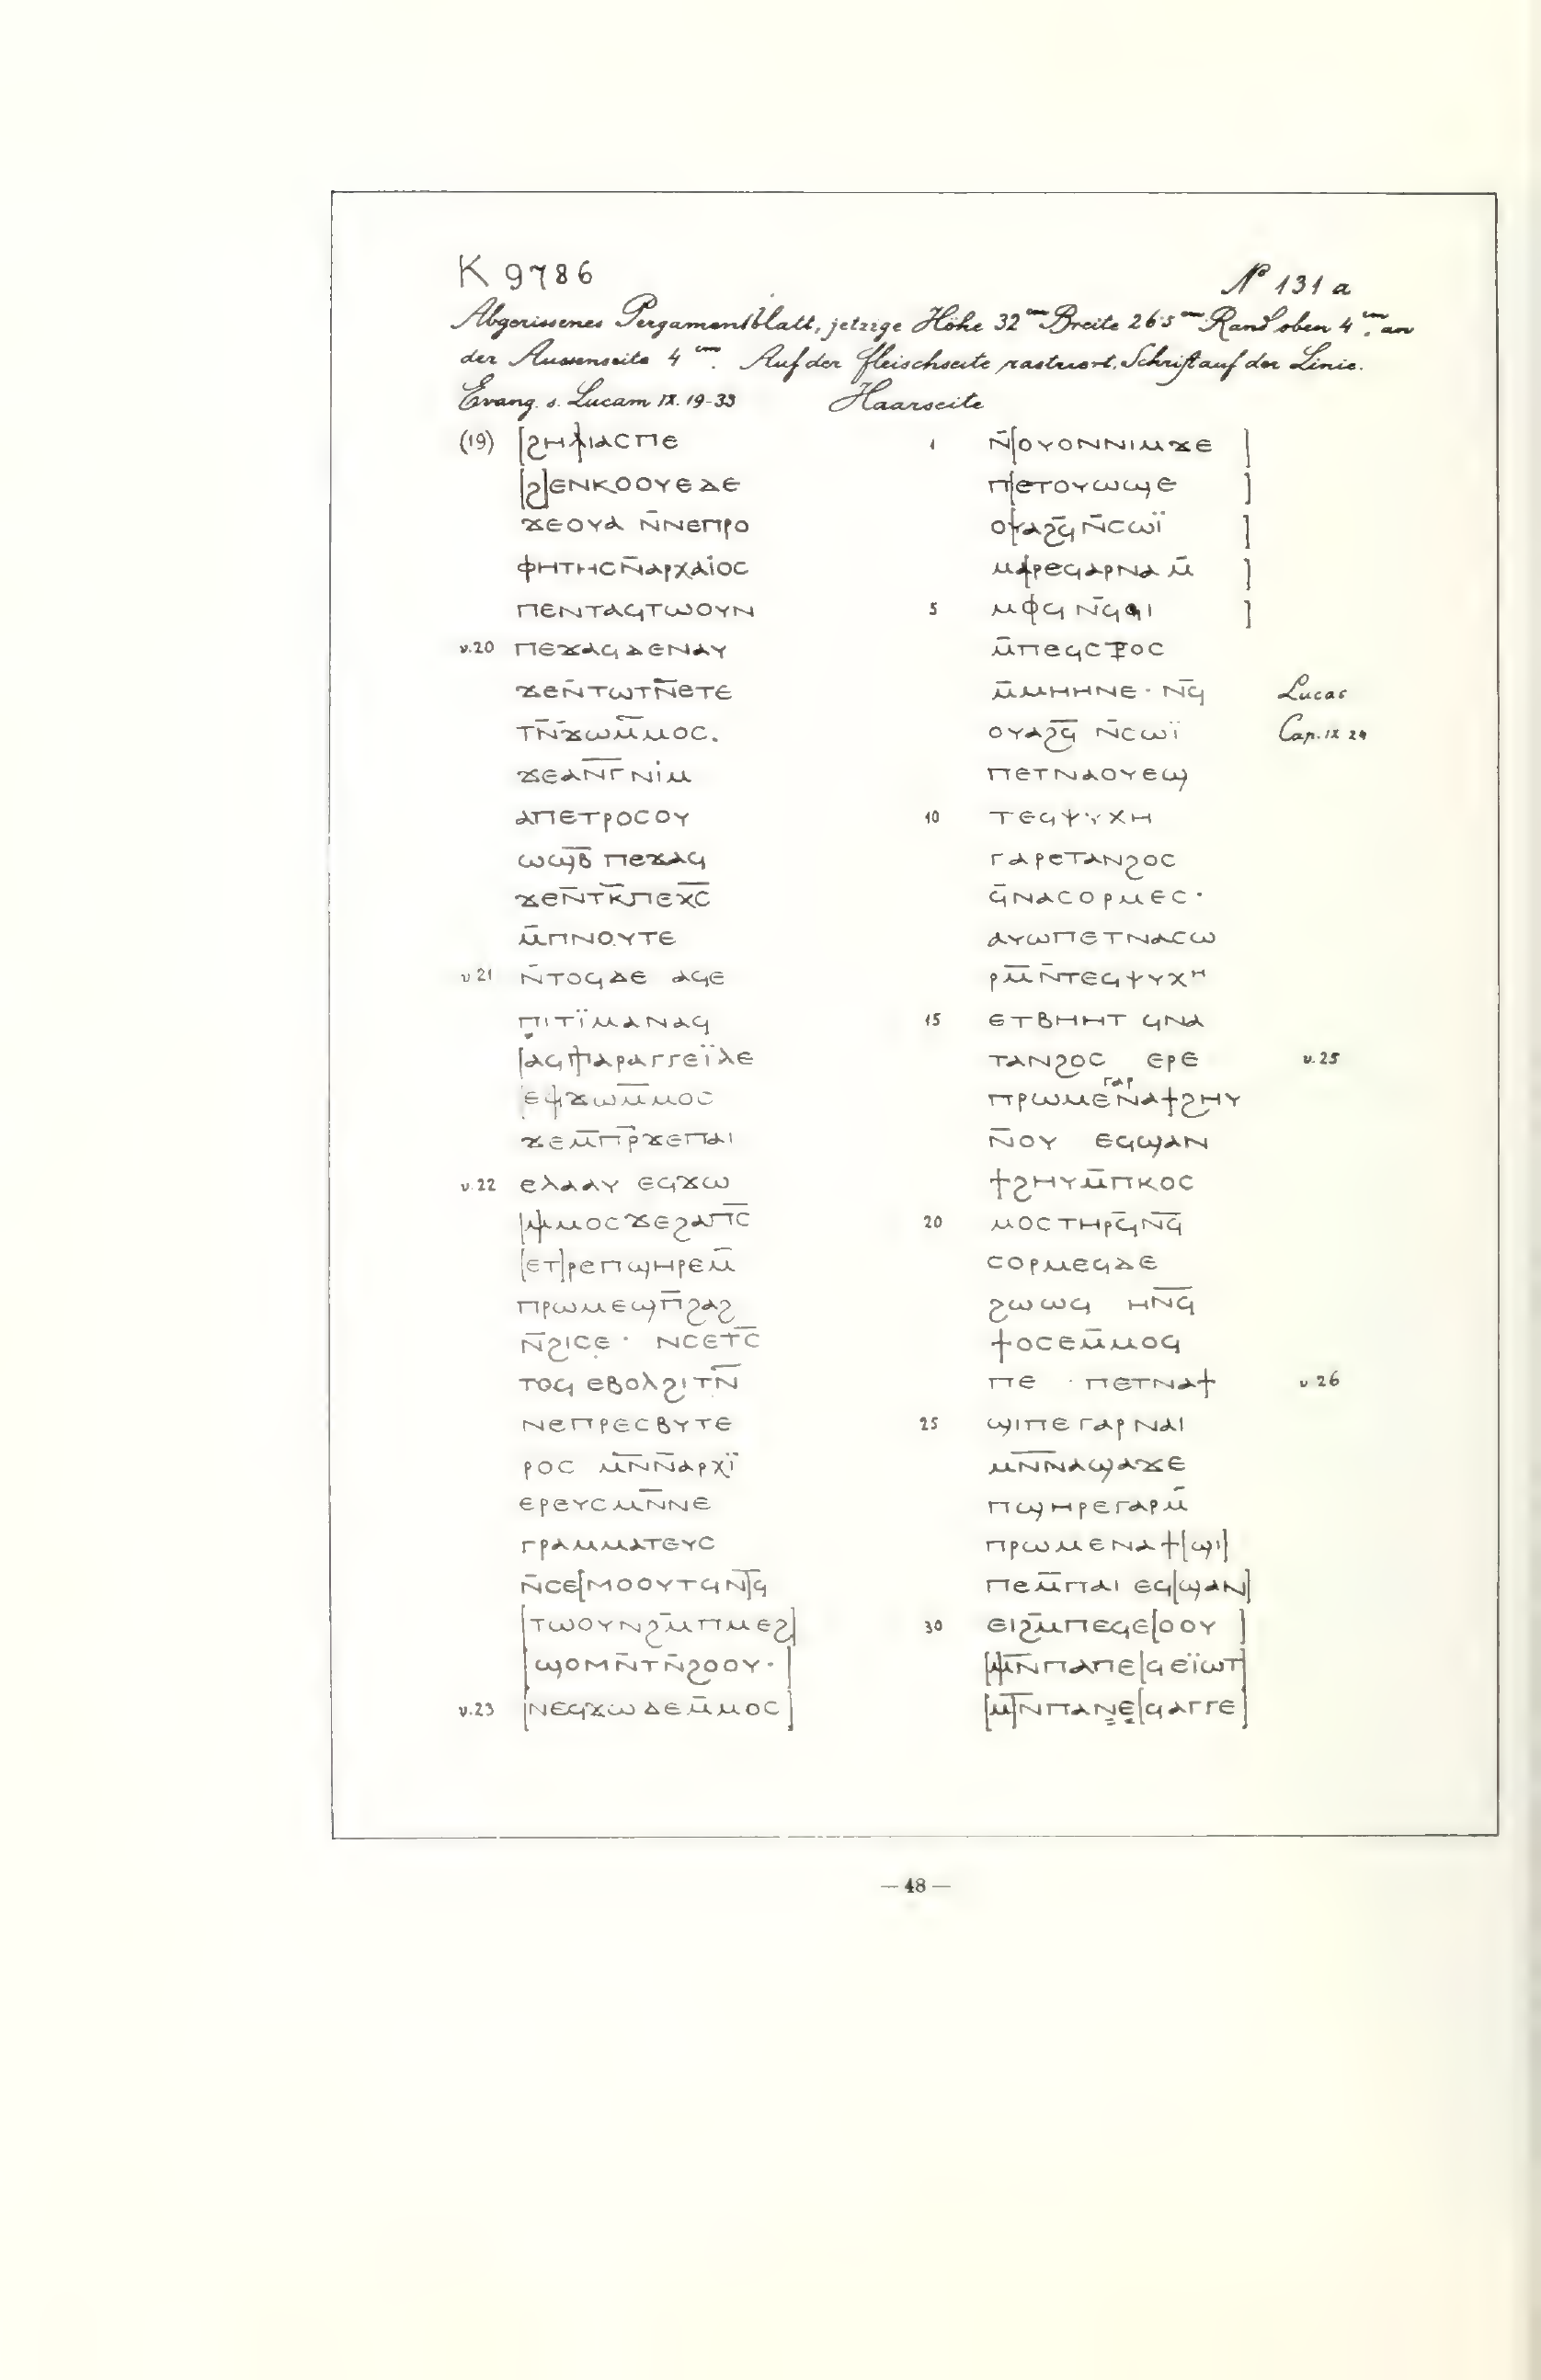 K 9786
Nº 131 a
Abgerissenes Pergamentblatt, jetzige Höhe 32 cm Breite 26·5 cm Rand oben 4 cm, an
der Aussenseite 4 cm. Auf der Fleischseite rastriert. Schrift auf der Linie.
Evang. s. Lucam IX. 19-33 Haarseite
(19) [ϩⲏⲗ]ⲓⲁⲥⲡⲉ
[ϩ]ⲉⲛⲕⲟⲟⲩⲉⲇⲉ
ϫⲉⲟⲩⲁ ⲛ̄ⲛⲉⲡⲣⲟ
ⲫⲏⲧⲏⲥⲛ̄ⲁⲣⲭⲁⲓⲟⲥ
ⲡⲉⲛⲧⲁϥⲧⲱⲟⲩⲛ
v.20 ⲡⲉϫⲁϥⲇⲉⲛⲁⲩ
ϫⲉⲛ̄ⲧⲱⲧⲛ̄ⲉⲧⲉ
ⲧⲛ̄ϫⲱⲙ̄ⲙⲟⲥ.
ϫⲉⲁⲛ̄ⲅ̄ⲛⲓⲙ
ⲁⲡⲉⲧⲣⲟⲥⲟⲩ
ⲱϣ̄ⲃ̄ ⲡⲉϫⲁϥ
ϫⲉⲛ̄ⲧⲕ̄ⲡⲉⲭ̄ⲥ̄
ⲙ̄ⲡⲛⲟⲩⲧⲉ
v.21 ⲛ̄ⲧⲟϥⲇⲉ ⲁϥⲉ
ⲡⲓⲧⲓ̈ⲙⲁⲛⲁϥ
[ⲁϥⲡ]ⲁⲣⲁⲅⲅⲉⲓ̈ⲗⲉ
[ⲉϥ]ϫⲱⲙ̄ⲙⲟⲥ
ϫⲉⲙ̄ⲡ̄ⲣ̄ϫⲉⲡⲁⲓ
v.22 ⲉⲗⲁⲁⲩ ⲉϥϫⲱ
[ⲙ]ⲙⲟⲥϫⲉϩⲁⲡ̄ⲥ̄
[ⲉⲧ]ⲣⲉⲡϣⲏⲣⲉⲙ̄
ⲡⲣⲱⲙⲉϣⲡ̄ϩⲁϩ
ⲛ̄ϩⲓⲥⲉ · ⲛⲥⲉⲧⲥ̄
ⲧⲟϥ ⲉⲃⲟⲗϩⲓⲧⲛ̄
ⲛⲉⲡⲣⲉⲥⲃⲩⲧⲉ
ⲣⲟⲥ ⲙⲛ̄ⲛ̄ⲁⲣⲭⲓ̈
ⲉⲣⲉⲩⲥⲙⲛ̄ⲛⲉ
ⲅⲣⲁⲙⲙⲁⲧⲉⲩⲥ
ⲛ̄ⲥⲉ[ⲙⲟⲟⲩⲧϥⲛ̄]ϥ̄
[ⲧⲱⲟⲩⲛϩⲙ̄ⲡⲙⲉϩ]
[ϣⲟⲙⲛ̄ⲧⲛ̄ϩⲟⲟⲩ·]
v.23 [ⲛⲉϥϫⲱⲇⲉⲙ̄ⲙⲟⲥ]
1 ⲛ̄[ⲟⲩⲟⲛⲛⲓⲙϫⲉ ]
ⲡ[ⲉⲧⲟⲩⲱϣⲉ ]
ⲟ[ⲩⲁϩϥ̄ ⲛ̄ⲥⲱⲓ̈ ]
ⲙⲁ[ⲣⲉϥⲁⲣⲛⲁ ⲙ̄ ]
5 ⲙⲟϥ ⲛ̄ϥϥⲓ ]
ⲙ̄ⲡⲉϥⲥ⳨ⲟⲥ
ⲙ̄ⲙⲏⲏⲛⲉ · ⲛϥ̄ Lucas
ⲟⲩⲁϩϥ̄ ⲛ̄ⲥⲱⲓ̈ Cap. IX 24
ⲡⲉⲧⲛⲁⲟⲩⲉϣ
10 ⲧⲉϥⲯⲩⲭⲏ
ⲅⲁⲣⲉⲧⲁⲛϩⲟⲥ
ϥ̄ⲛⲁⲥⲟⲣⲙⲉⲥ ·
ⲁⲩⲱⲡⲉⲧⲛⲁⲥⲱ
ⲣⲙ̄ⲛ̄ⲧⲉϥⲯⲩⲭⲏ
15 ⲉⲧⲃⲏⲏⲧ ϥⲛⲁ
ⲧⲁⲛϩⲟⲥ ⲉⲣⲉ v.25
ⲅⲁⲣ
ⲡⲣⲱⲙⲉⲛⲁϯϩⲏⲩ
ⲛ̄ⲟⲩ ⲉϥϣⲁⲛ
ϯϩⲏⲩⲙ̄ⲡⲕⲟⲥ
20 ⲙⲟⲥⲧⲏⲣϥ̄ⲛϥ̄
ⲥⲟⲣⲙⲉϥⲇⲉ
ϩⲱⲱϥ ⲏⲛ̄ϥ̄
ϯⲟⲥⲉⲙ̄ⲙⲟϥ
ⲡⲉ · ⲡⲉⲧⲛⲁϯ v 26
25 ϣⲓⲡⲉ ⲅⲁⲣ ⲛⲁⲓ
ⲙⲛ̄ⲛⲁϣⲁϫⲉ
ⲡϣⲏⲣⲉⲅⲁⲣⲙ̄
ⲡⲣⲱⲙⲉⲛⲁϯ[ϣⲓ]
ⲡⲉⲙ̄ⲡⲁⲓ ⲉϥ[ϣⲁⲛ]
30 ⲉⲓϩⲙ̄ⲡⲉϥⲉ[ⲟⲟⲩ ]
[ⲙ]ⲛ̄ⲡⲁⲡⲉ[ϥⲉⲓ̈ⲱⲧ]
[ⲙ]ⲛ̄ⲡⲁⲛⲉ[ϥⲁⲅⲅⲉ]
— 48 —